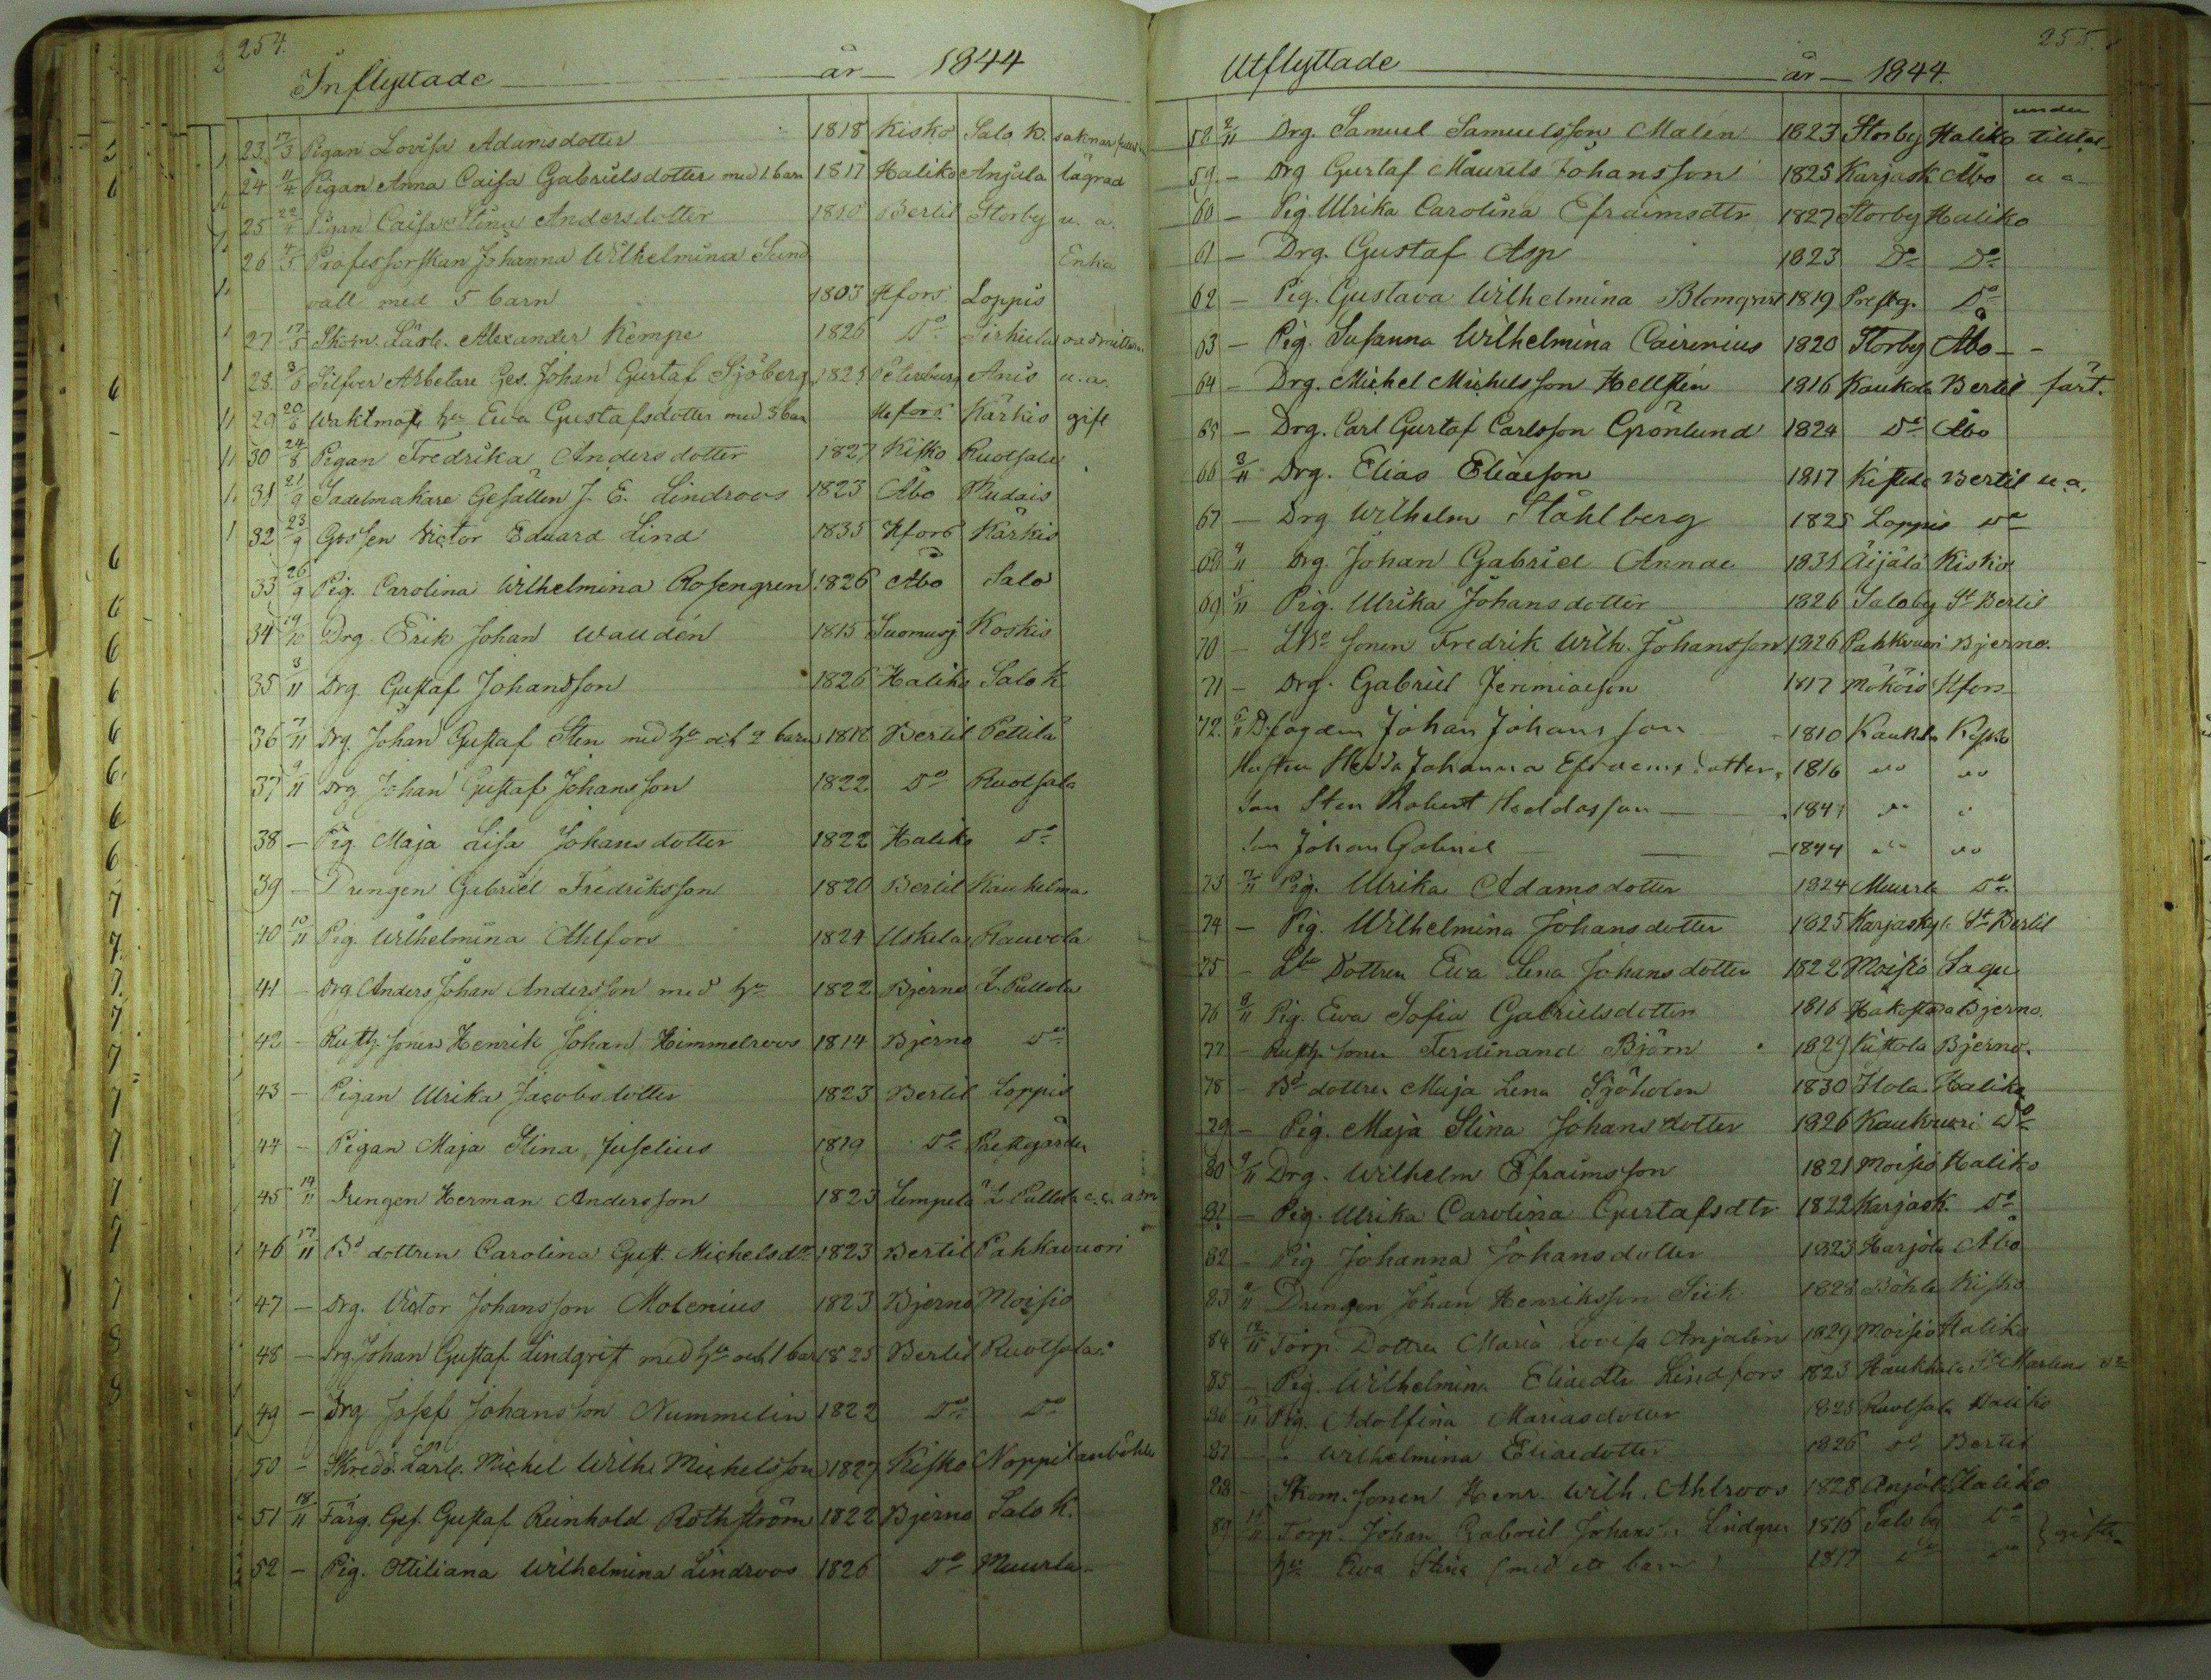 254.
Inflyttade år 1844
23. 17/3 Pigan Lovisa Adamsdotter 1818 Kisko Salo K. saknar
24 11/4 Pigan Anna Caisa Gabrielsdotter med 1 barn 1817 Haliko Anjala lägrad
25 22/4 Pigan Caisa Stina Andersdotter 1810 Bertil Storby u. a.
26 4/5 Professorskan Johanna Wilhelmina Sund Enka
vall med 5 barn 1803 Hfors Loppis
27 17/5 Skom. Lärl. Alexander Kempe 1826 Do
28. 3/6 Silfver Arbetare Ges. Johan Gustaf Sjöberg 1825 Petersburg Anis u. a.
29 20/6 Waktmast. hu Ewa Gustafsdotter med 3 barn Hefors Kärkis gift
30 24/8 Pigan Fredrika Andersdotter 1827 Kisko Ruotsala
31 21/9 Sadelmakare Gesällen J. E. Lindroos 1823 Åbo Mudais
32 23/9 Gossen Victor Eduard Lind 1835 Hfors Kärkis
33 26/9 Pig. Carolina Wilhelmina Rosengren 1826 Åbo Salo
34 19/10 Drg. Erik Johan Walldén 1815 Suomusj Koskis
35 3/11 Drg. Gustaf Johansson 1826 Haliko Salo K
36 7/11 Drg. Johan Gustaf Sten med hu och 2 barn 1812 Bertil Pettilä
37 9/11 Drg Johan Gustaf Johansson 1822 Do Ruotsala
38 — Pig Maja Lisa Johansdotter 1822 Haliko Do
39 — Drengen Gabriel Fredriksson 1820 Bertil Kaukelma
40 10/11 Pig. Wilhelmina Ahlfors 1824 Uskela Rauvola
41 — Drg. Anders Johan Andersson med hu 1822 Bjerno L. Pullola
42 — Rusth. sonen Henrik Johan Himmelroos 1814 Bjerno Do
43 — Pigan Ulrika Jacobsdotter 1823 Bertil Loppis
44 — Pigan Maja Stina Juselius 1819 Do Prestgården
45 14/11 Drengen Herman Andersson 1823 Lempelä L. Pullola
46 17/11 Bd dottren Carolina Gust. Michelsdr 1823 Bertil Pahkavuori
47 — Drg. Victor Johansson Molenius 1823 Bjerno Moisio
48 — Drg. Johan Gustaf Lindqvist med hu och 1 bar 1825 Bertil Ruotsala
49 — Drg Josef Johansson Nummelin 1822 Do Do
50 — Skredd. Lärl. Michel Wilh. Michelsson 1827 Kisko Noppilanböhle
51 18/11 Färg. Ges. Gustaf Reinhold Rothström 1822 Bjerno Salo K.
52 — Pig. Ottiliana Wilhelmina Lindroos 1826 Do Muurla
255.
Utflyttade år 1844.
under
58 2/11 Drg. Samuel Samuelsson Malén 1823 Storby Haliko tilltal
59. — Drg Gustaf Maurits Johansson 1825 Karjask Åbo u a
60 — Pig. Ulrika Carolina Efraimsdtr 1827 Storby Haliko
61 — Drg. Gustaf Asp 1823 Do Do
62 — Pig. Gustava Wilhelmina Blomqvist 1819 Prestg. Do
63 — Pig. Susanna Wilhelmina Cairenius 1820 Storby Åbo — -
64 — Drg. Michel Michelsson Hellstén 1816 Kaukola Bertil
65 — Drg. Carl Gustaf Carlsson Grönlund 1824 Do Åbo
66 3/11 Drg. Elias Eliaeson 1817 Bertil u. a.
67 — Drg Wilhelm Ståhlberg 1825 Loppis Do
68 4/11 Drg. Johan Gabriel Annae 1835 Äijälä Kisko
69 5/11 Pig. Ulrika Johansdotter 1826 Saloby St Bertil
70 — sonen Fredrik Wilh. Johansson 1826 Pahkvuori Bjerno.
71 — Drg. Gabriel Jeremiaeson 1817 Mökois Hfors
72. 6/11 fogden Johan Johansson 1810 Kaukola Kisko
Hustru Hedda Johanna Efraemsdotter, 1816 do do
son Sten Robert Heddasson 1841 do
son Johan Gabriel 1844 do do
73 7/11 Pig. Ulrika Adamsdotter 1824 Muurla Do
74 — Pig. Wilhelmina Johansdotter 1825 Karjasky St Bertil
75 — Dottren Ewa Lena Johansdotter 1822 Moisio Sagu
76 8/11 Pig. Ewa Sofia Gabrielsdotter 1816 Bjerno.
77 — Rusth. sonen Ferdinand Björn 1829 Bjerno.
78 — Bd dottren Maja Lena Sjöholm 1830 Isola Haliko
79 — Pig. Maja Stina Johansdotter 1826 Kaukvuori Do
80 9/11 Drg. Wilhelm Efraimsson 1821 Moisio Haliko
81 — Pig. Ulrika Carolina Gustafsdtr 1822 Karjask. Do
82 — Pig Johanna Johansdotter 1823 Åbo
83 Drengen Johan Henriksson Siik 1828 Böhle Kisko
84 12/11 Torp. Dottren Maria Lovisa Anjalin 1829 Moisio Haliko
85 — Pig. Wilhelmina Eliaedtr Lindfors 1823 St Martens
86 Pig. Adolfina Mariasdotter 1825 Ruotsala Haliko
87 — Wilhelmina Eliaedotter 1826 Do Bertil
88 — Skom. sonen Henr. Wilh. Ahlroos 1828 Anjal Haliko
89 Torp. Johan Gabriel Johanss. Lindgren 1816 Salo by Do } gifte
hu Ewa Stina (med ett barn) 1817 Do Do